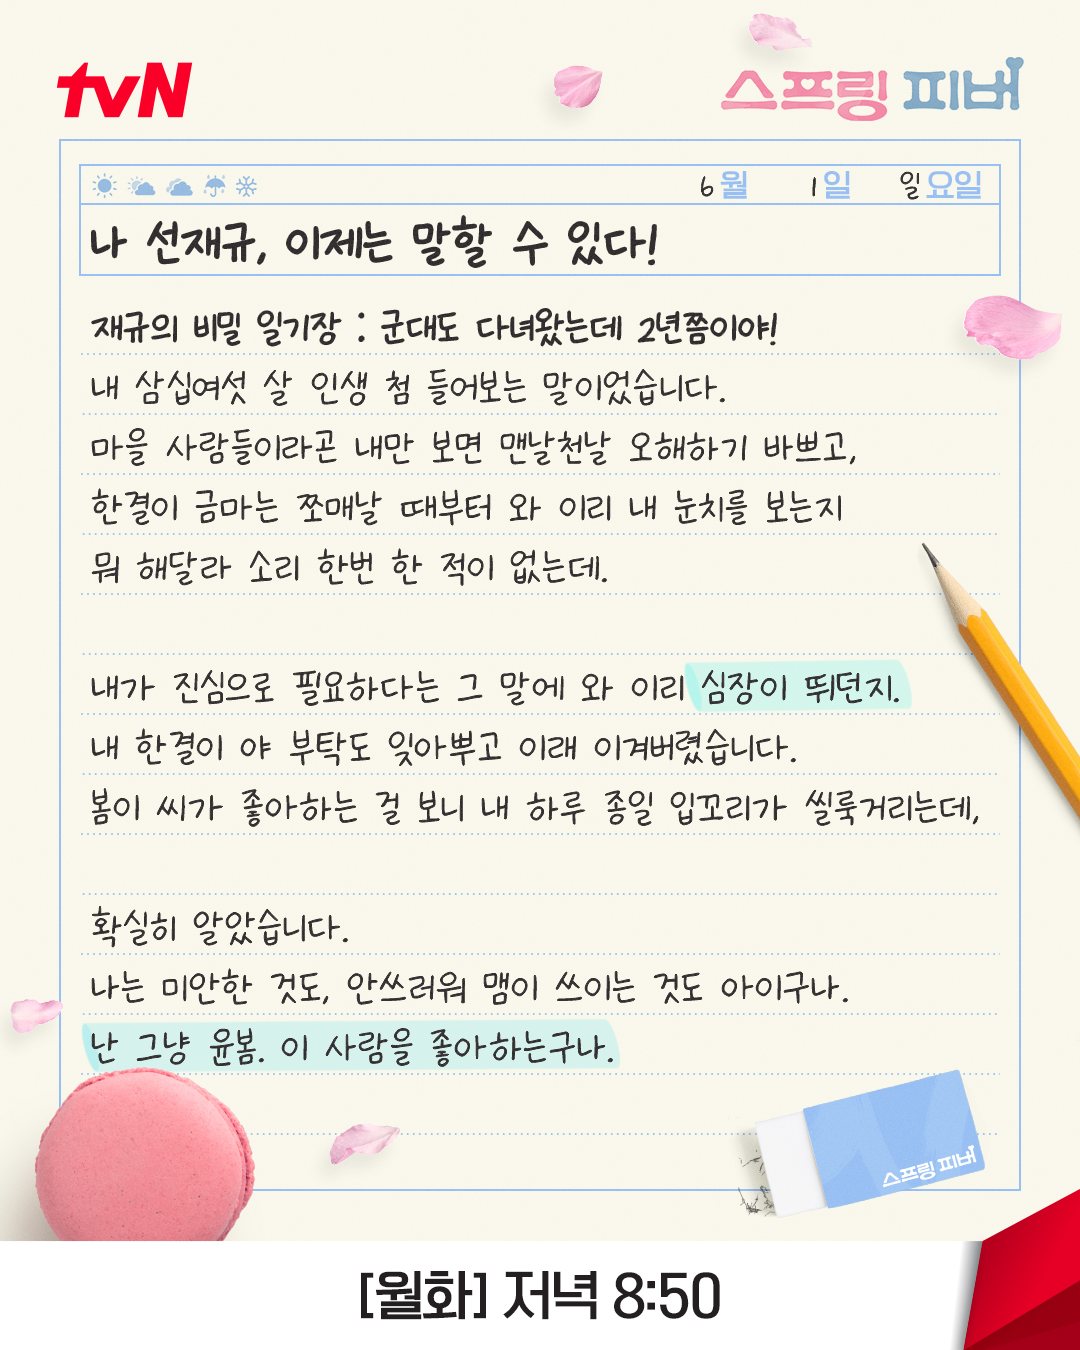 tvN
스프링 피버
6월 1일 일요일
나 선재규, 이제는 말할 수 있다!
재규의 비밀 일기장 : 군대도 다녀왔는데 2년쯤이야!
내 삼십여섯 살 인생 첨 들어보는 말이었습니다.
마을 사람들이라곤 내만 보면 맨날천날 오해하기 바쁘고,
한결이 금마는 쪼매날 때부터 와 이리 내 눈치를 보는지
뭐 해달라 소리 한번 한 적이 없는데.
내가 진심으로 필요하다는 그 말에 와 이리 심장이 뛰던지.
내 한결이 야 부탁도 잊아뿌고 이래 이겨버렸습니다.
봄이 씨가 좋아하는 걸 보니 내 하루 종일 입꼬리가 씰룩거리는데,
확실히 알았습니다.
나는 미안한 것도, 안쓰러워 맴이 쓰이는 것도 아이구나.
난 그냥 윤봄. 이 사람을 좋아하는구나.
스프링 피버
[월화] 저녁 8:50